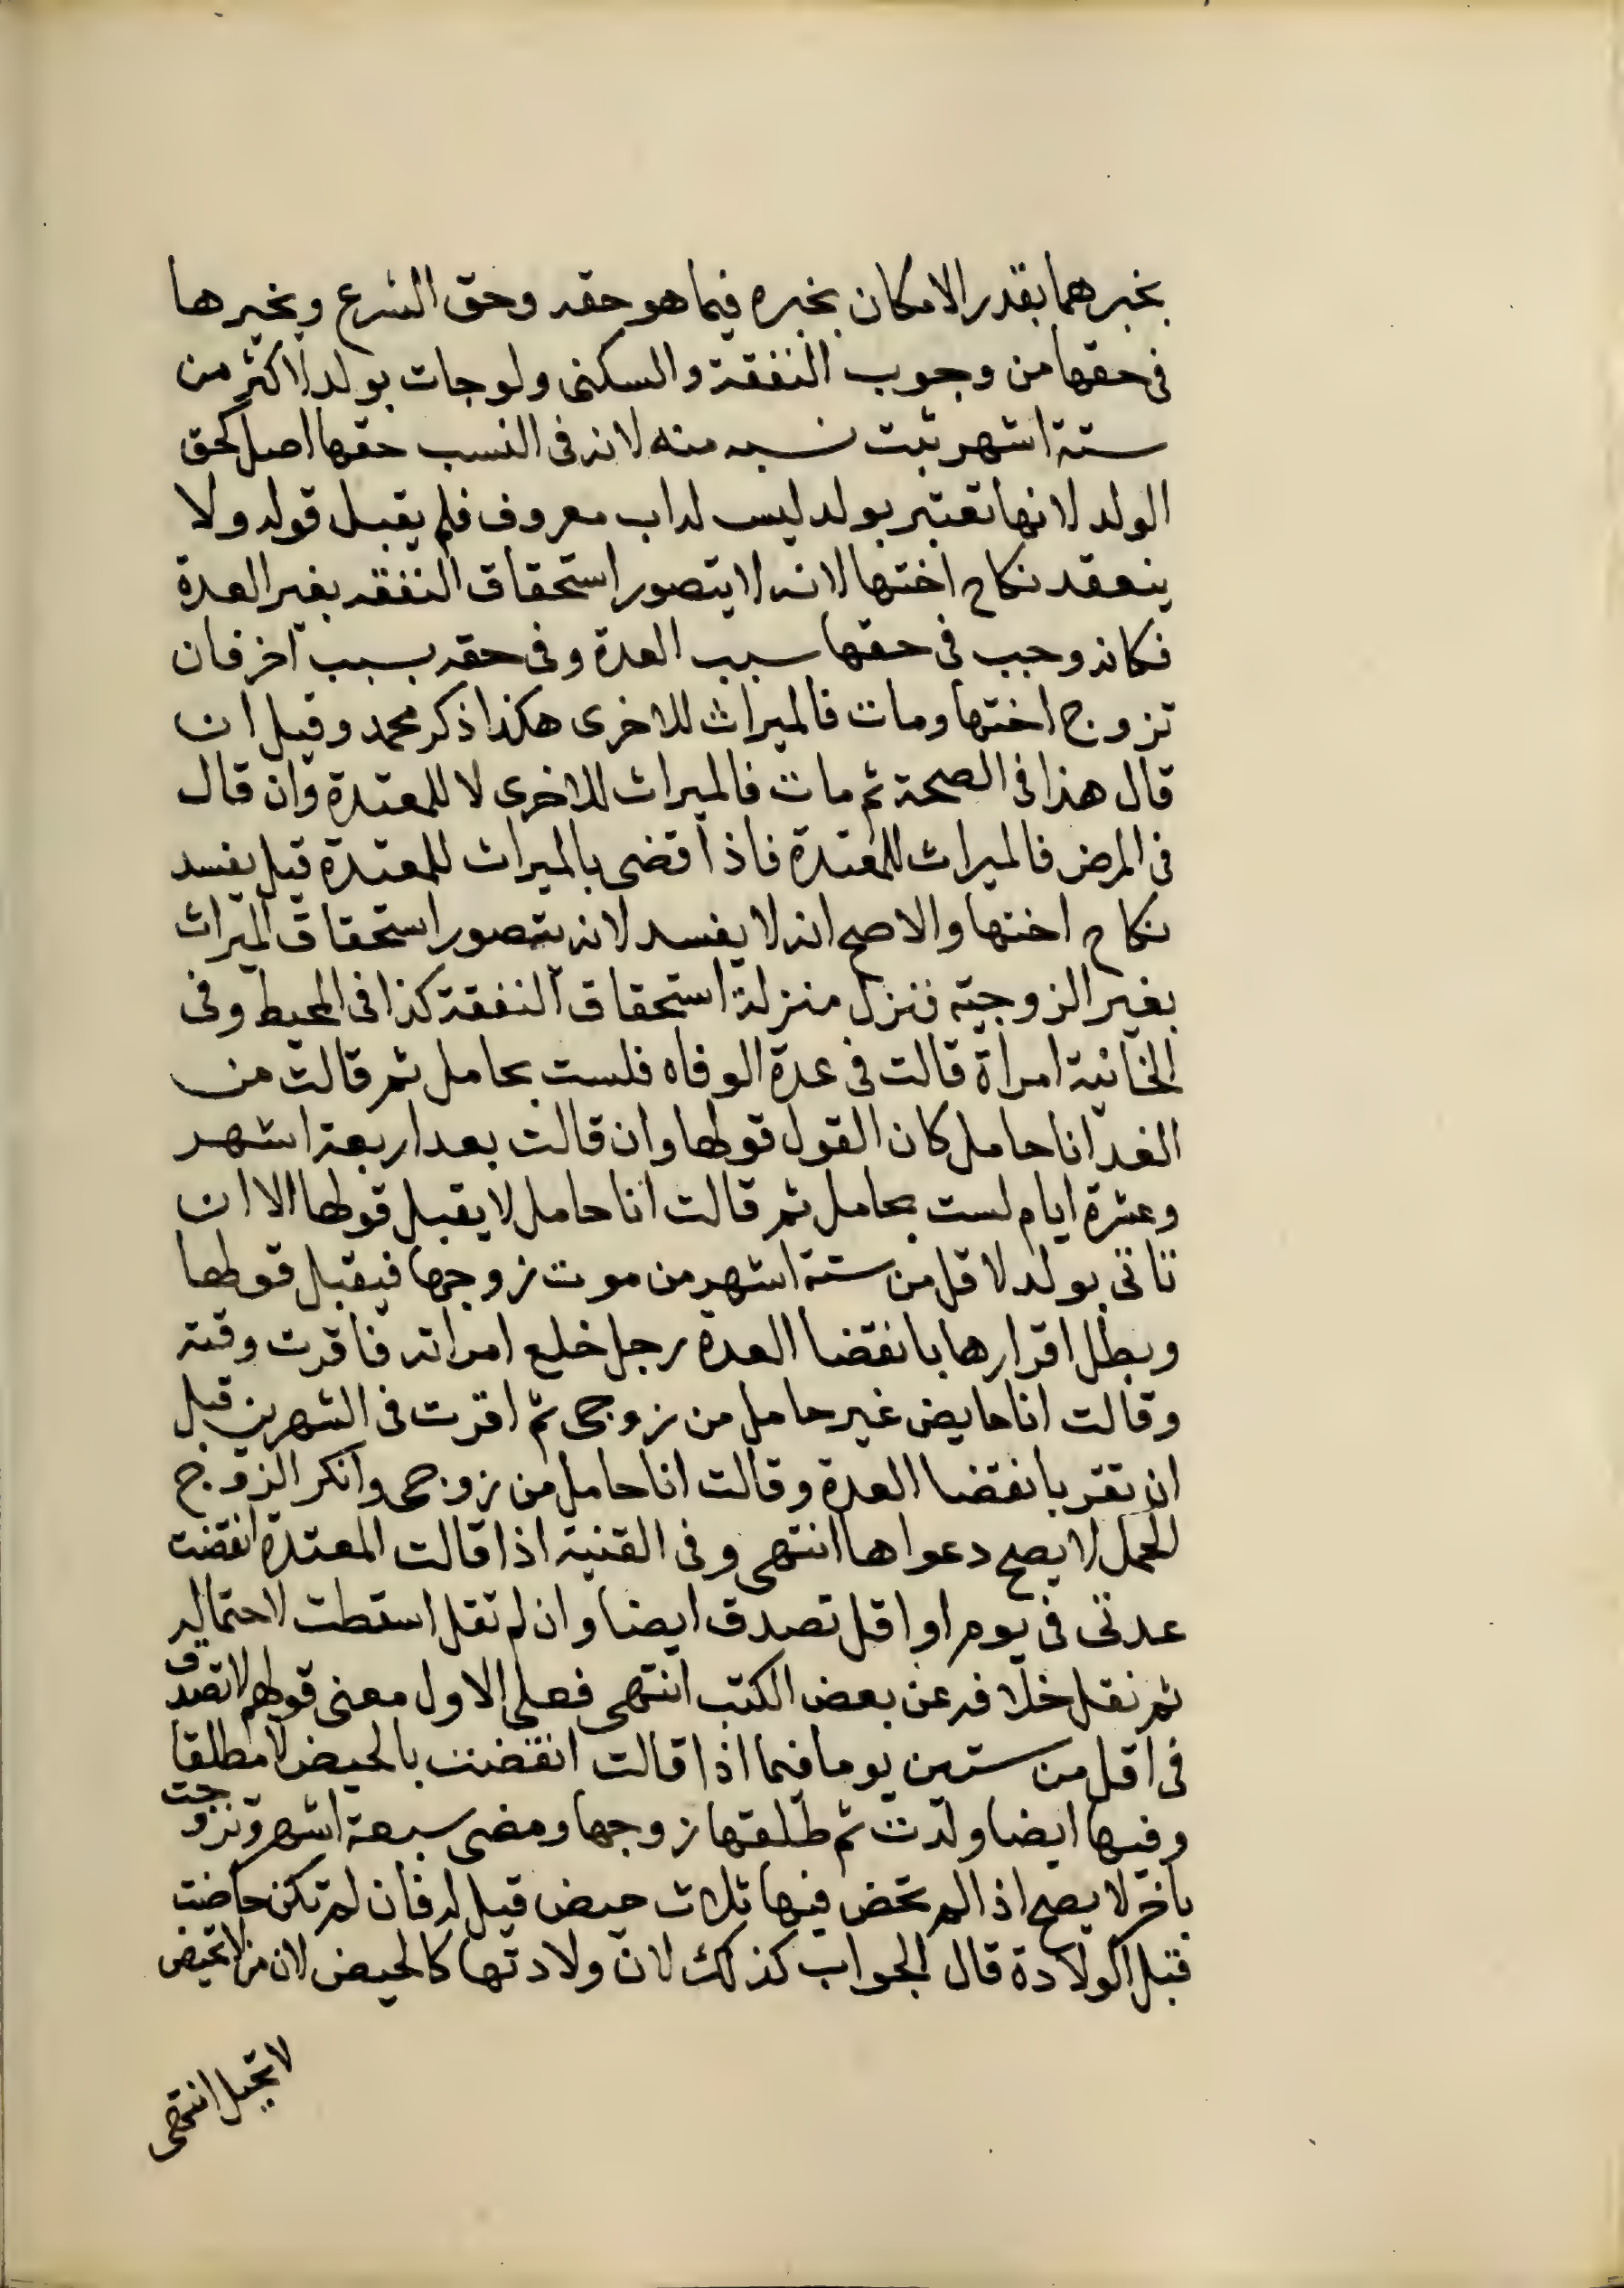 بخبرهما بقدر الامكان بخبره فيما هو حقه وحق الشرع وبخبرها
فى حقها من وجوب النفقة والسكنى ولو جات بولد لاكثر من
ستة اشهر ثبت نسبه منه لانه فى النسب حقها اصل كحق
الولد لانها تعتبر بولد ليس له اب معروف فلم يقبل قوله ولا
ينعقد نكاح اختها لانه لا يتصور استحقاق النفقه بغير العدة
فكانه وجب فى حقها سبب العدة وفى حقه بسبب آخر فان
تزوج اختها ومات فالميراث للاخرى هكذا ذكر محمد وقيل ان
قال هذا فى الصحة ثم مات فالميراث للاخرى لا للمعتدة وان قال
فى المرض فالميراث للمعتدة فاذا قضى بالميراث للمعتدة قيل يفسد
نكاح اختها والاصح انه لا يفسد لانه يتصور استحقاق الميراث
بغير الزوجية فنزل منزلة استحقاق النفقة كذا فى المحيط وفى
الخانية امراة قالت فى عدة الوفاه فلست بحامل ثم قالت من
الغد انا حامل كان القول قولها وان قالت بعد اربعة اشهر
وعشرة ايام لست بحامل ثم قالت انا حامل لا يقبل قولها الا ان
تاتى بولد لاقل من ستة اشهر من موت زوجها فيقبل قولها
وبطل اقرارها بانقضا العدة رجل خلع امراته فاقرت وقته
وقالت انا حايض غير حامل من زوجى ثم اقرت فى الشهرين قبل
ان تقر بانقضا العدة وقالت انا حامل من زوجى وانكر الزوج
الحمل لا يصح دعواها انتهى وفى القنية اذا قالت المعتدة انقضت
عدتى فى يوم او اقل تصدق ايضا وان لم تقل اسقطت لاحتماله
ثم نقل خلافه عن بعض الكتب انتهى فعلى الاول معنى قولهم لا تصدق
فى اقل من ستين يوما فيما اذا قالت انقضت بالحيض لا مطلقا
وفيها ايضا ولدت ثم طلقها زوجها ومضى سبعة اشهر وتزوجت
بآخر لا يصح اذا لم تحض فيها ثلاث حيض قيل له فان لم تكن حاضت
قبل الولادة قال الجواب كذلك لان ولادتها كالحيض لان من لا تحيض
لا تحبل انتهى